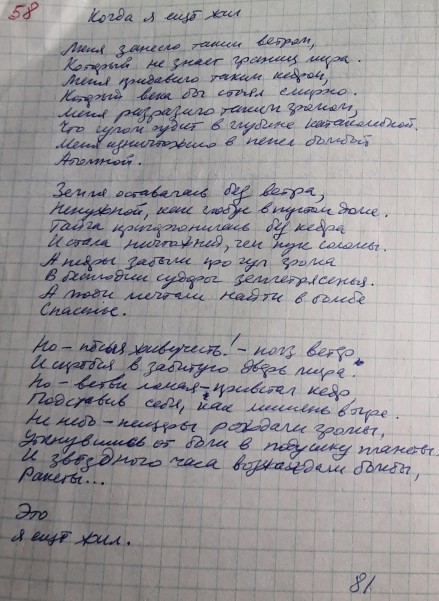 58
Когда я ещё жил
Меня занесло таким ветром,
Который не знает границ мира.
Меня придавило таким кедром,
Который века бы стоял смирно.
Меня разразило таким громом,
Что гулом гудит в глубине катакомбной.
Меня изничтожило в пепел бомбой
Атомной.
Земля оставалась без ветра,
Ненужной, как глобус в пустом доме.
Тайга притаптонилась без кедра
И стала ничтожней, чем пук соломы.
А недры забыли про гул грома
В бесплодии судорг землетрясенья.
А люди мечтали найти в бомбе
Спасенье.
Но - живучесть! - полз ветер
И скрёбся в забитую дверь мира.
Но - ветви ломая - привстал кедр,
Подставив себя, как мишень в тире.
Не небо - пещеры рождали громы,
Уткнувшись от боли в подушку планеты.
И звёздного часа возжаждали бомбы,
Ракеты...
Это
я ещё жил.
81